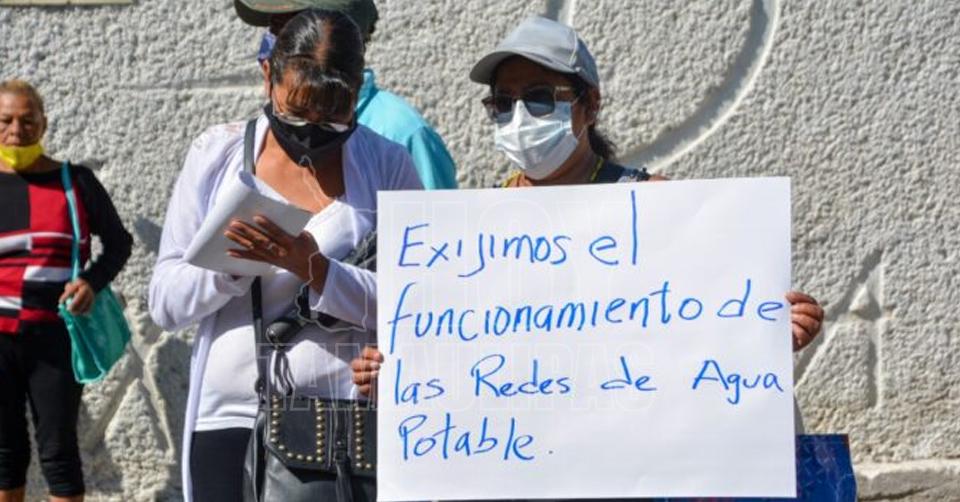 HOY
TAMAULIPAS
Exijimos el
funcionamiento de
las Redes de Agua
Potable.